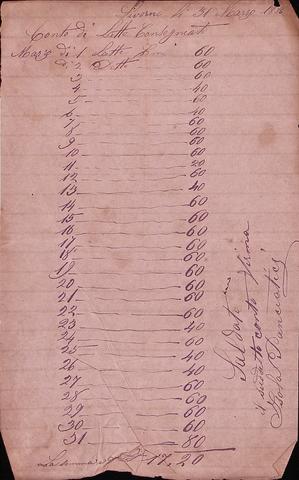 Livorno li 31 Marzo
Conto di Latte Consegniato
Marzo di 1 Latte 60
di 2 Detto 60
3 60
4 40
5 60
6 40
7 60
8 60
9 60
10 60
11 20
12 60
13 40
14 60
15 60
16 60
17 60
18 60
19 60
20 60
21 60
22 60
23 40
24 60
25 40
26 40
27 60
28 60
29 60
30 60
31 80
La somma 17,20
Saldato
il sudetto conto